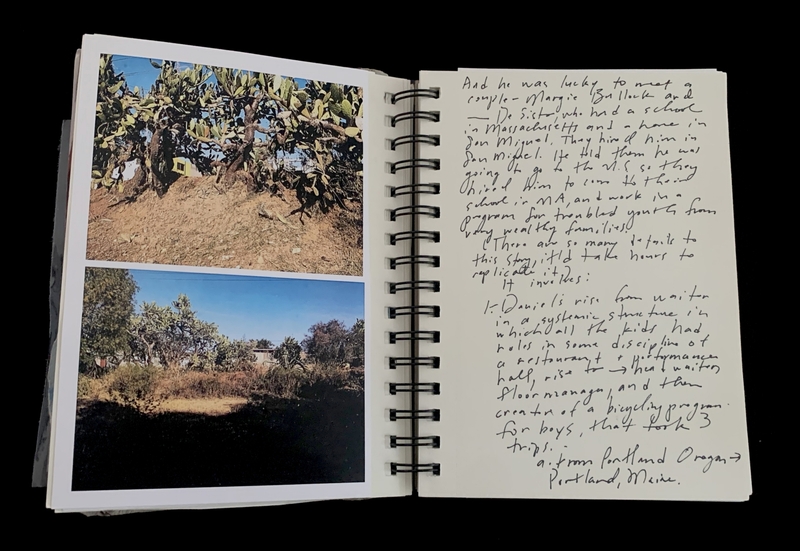 And he was lucky to meet a
couple - Margie Bullock and
— De Sisto, who had a school
in Massachusetts and a home in
San Miguel. They hired him in
San Miguel. He told them he was
going to go to the U.S. so they
hired him to come to their
school in MA, and work in a
program for troubled youth from
very wealthy families.
There are so many details to
this story, it'ld take hours to
replicate it.
It involves:
1- Daniel's rise from waiter
in a systemic structure in
which all the kids had
roles in some discipline of
a restaurant + performance
hall, rise to → head waiter,
floor manager, and then
creator of a bicycling program
for boys, that took 3
trips...
a. from Portland Oregon →
Portland, Maine.